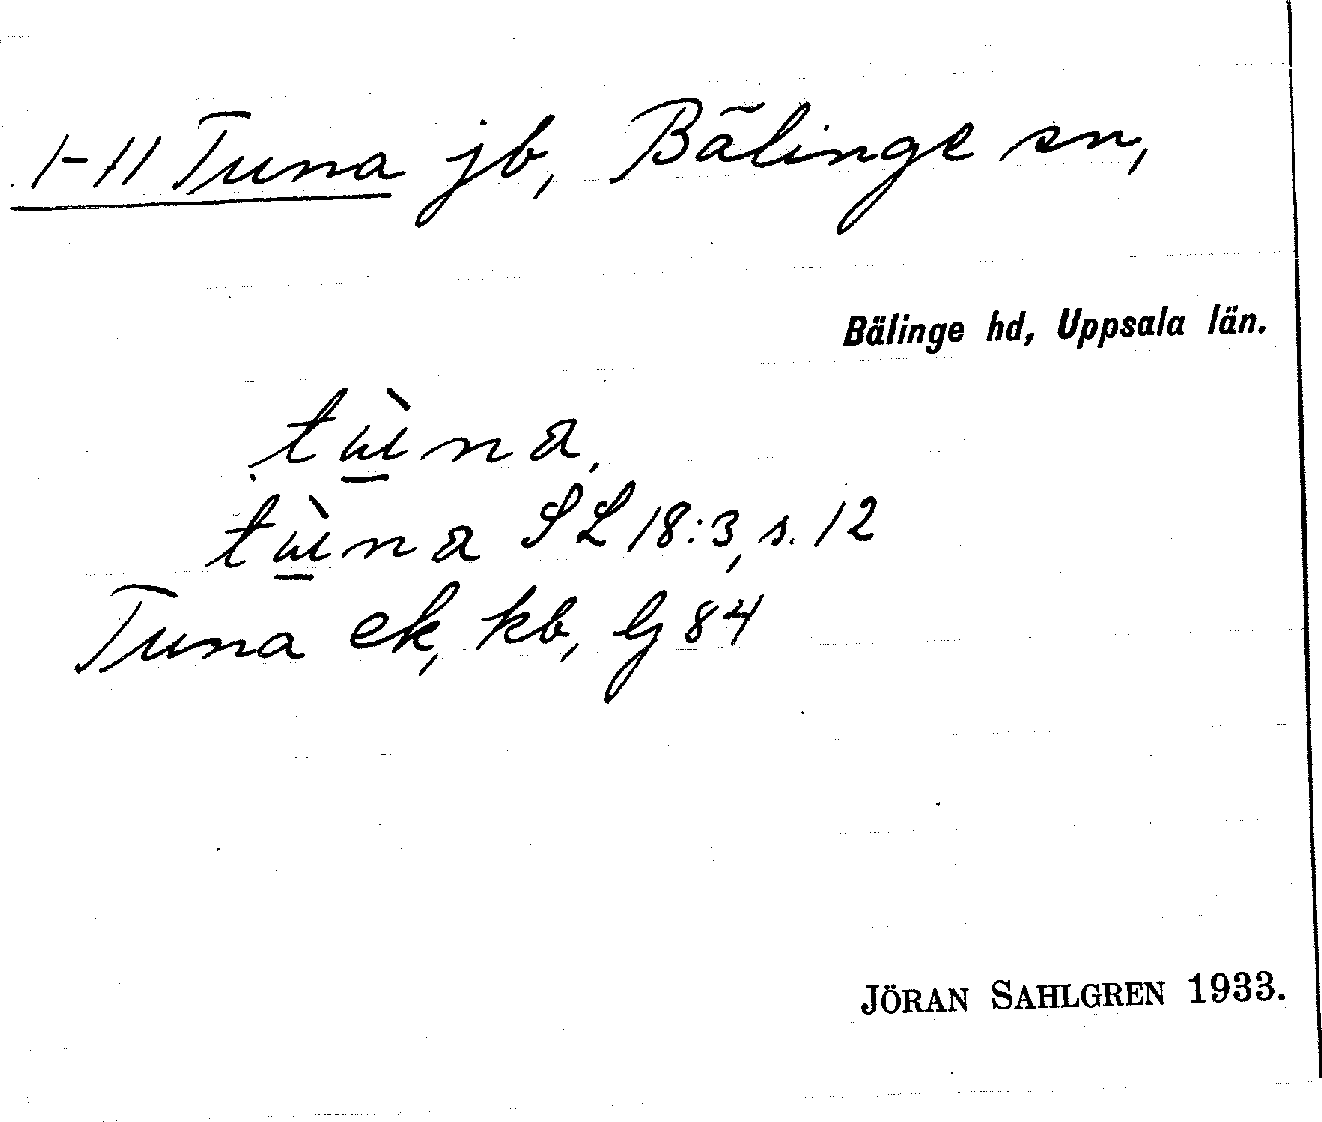 1-11 Tuna jb, Bälinge sn,
Bälinge hd, Uppsala län.
tɯ̀na,
tɯ̀na SL 18:3, s. 12
Tuna ek, kb, Gj 84
JÖRAN SAHLGREN 1933.